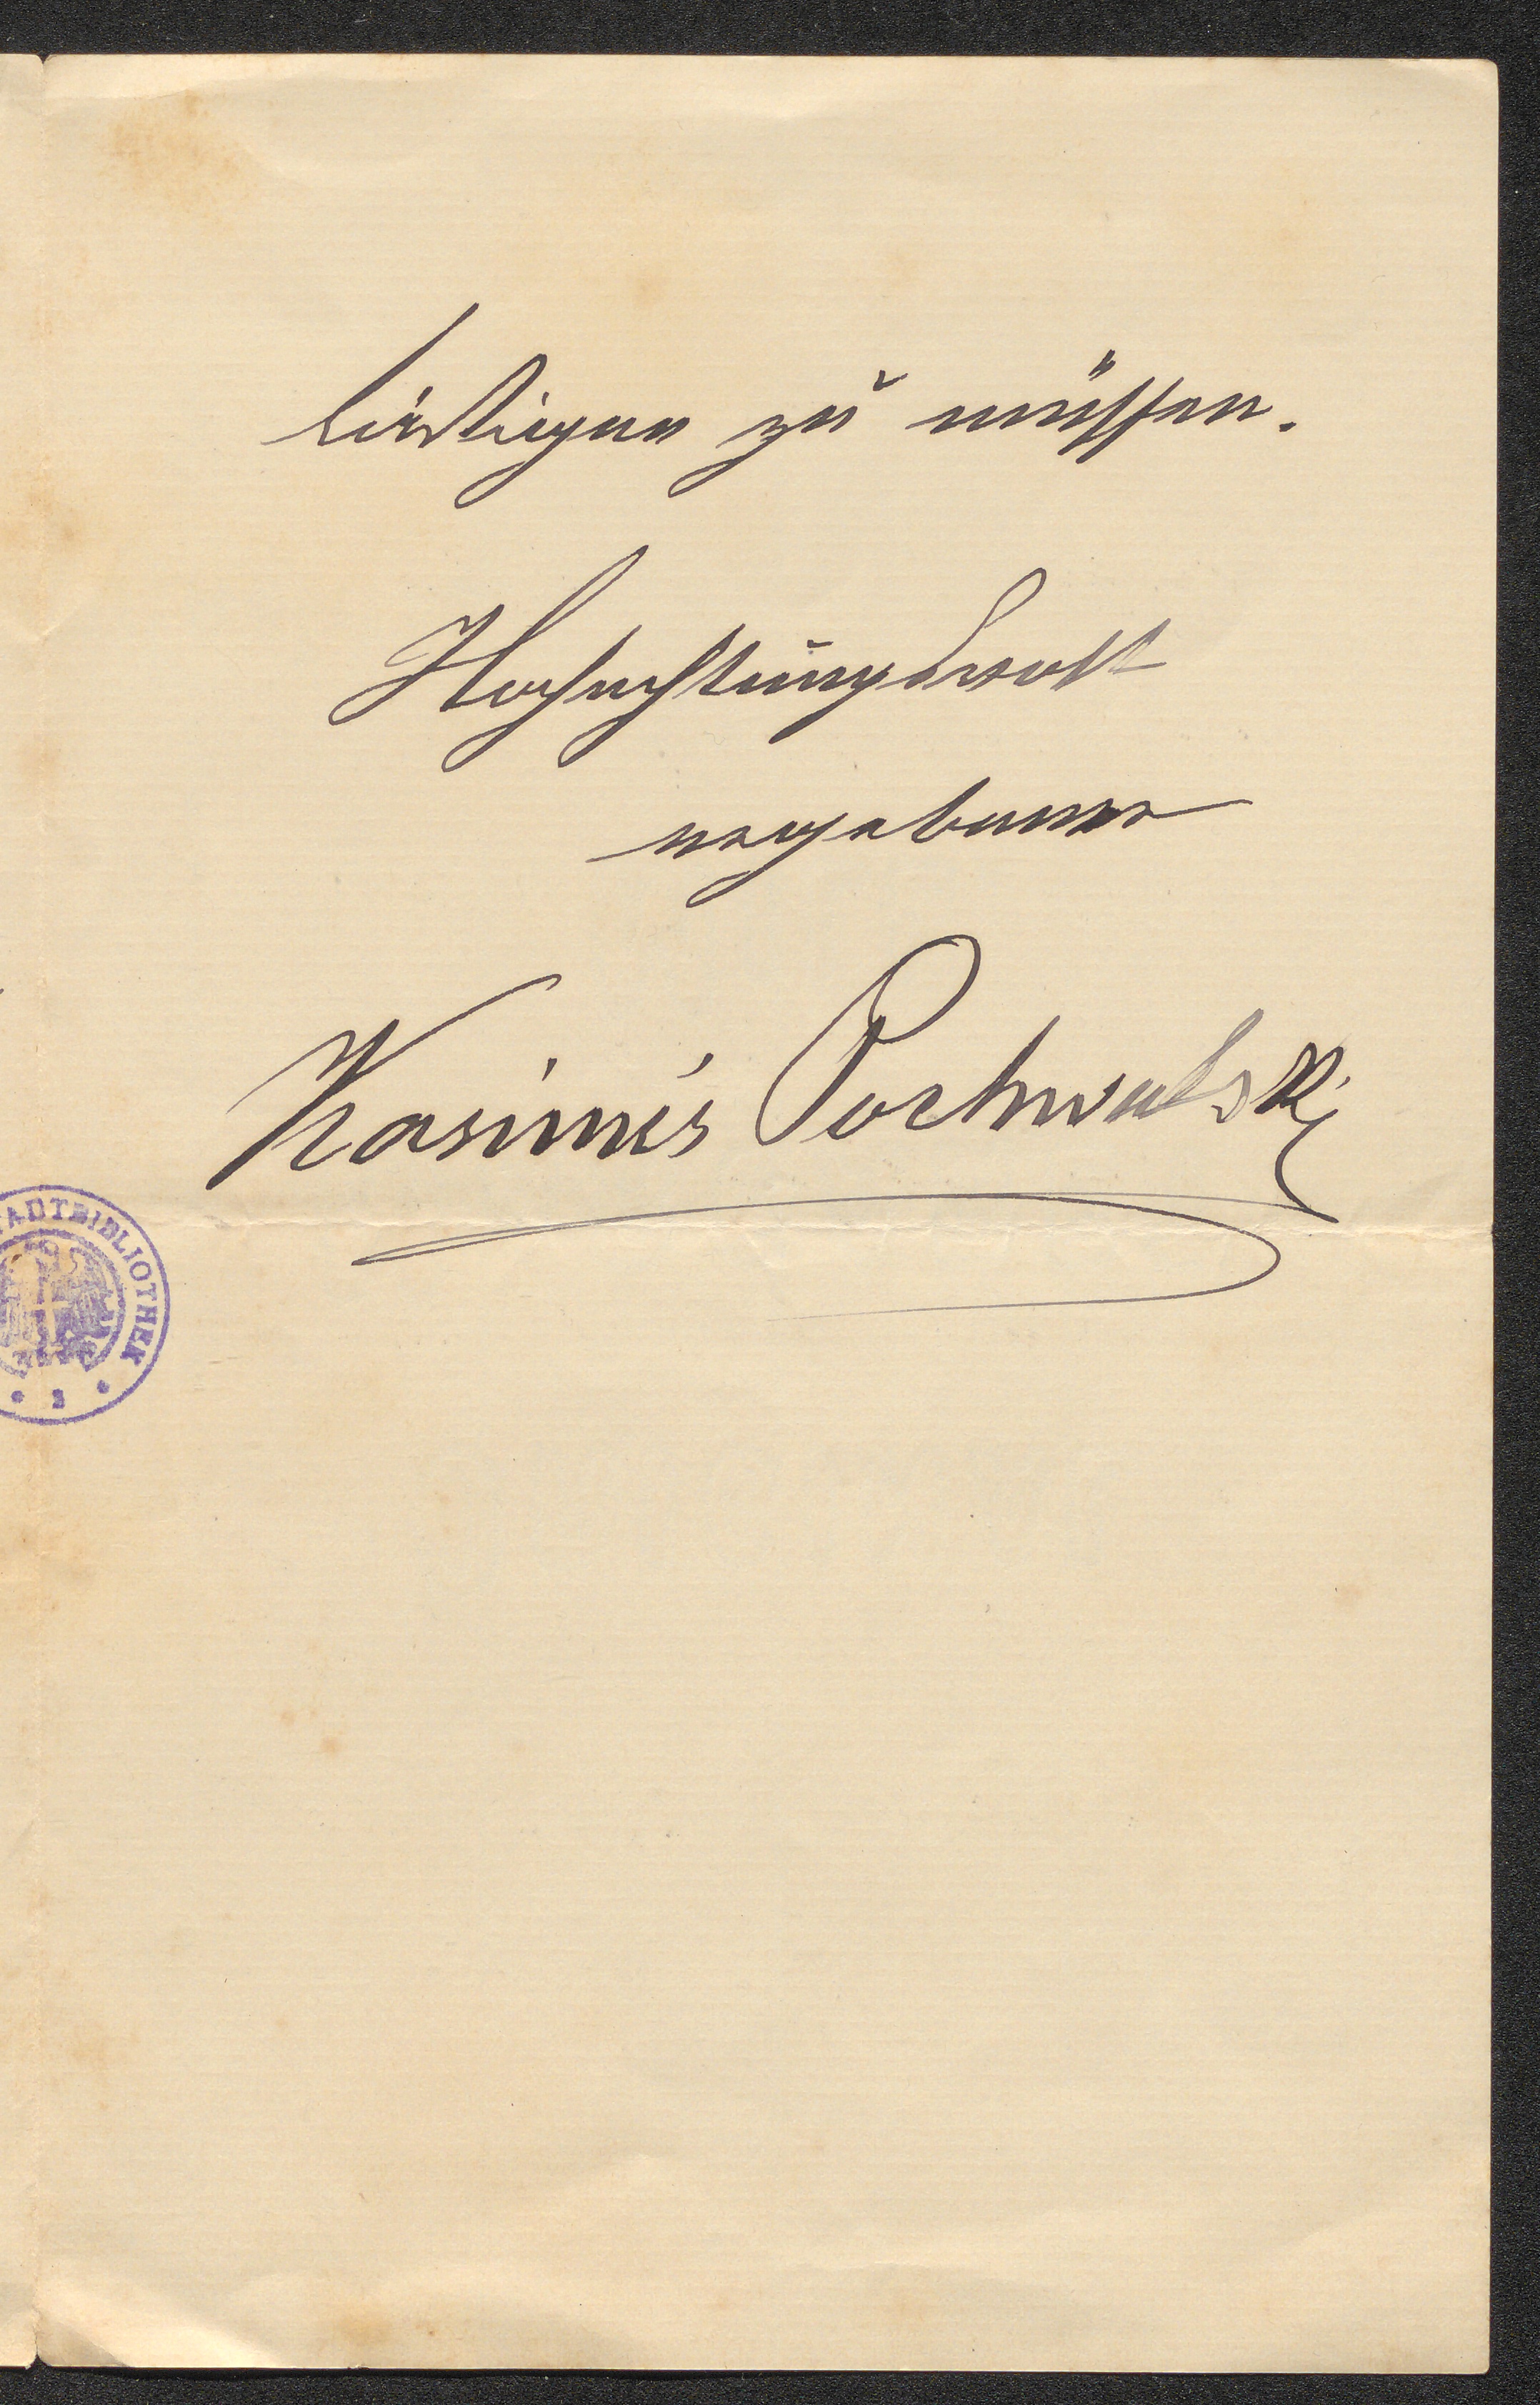 lästigen zu müssen.
Hochachtungsvoll
ergebener
Kasimir Pochwalski
TADTBIBLIOTHEK